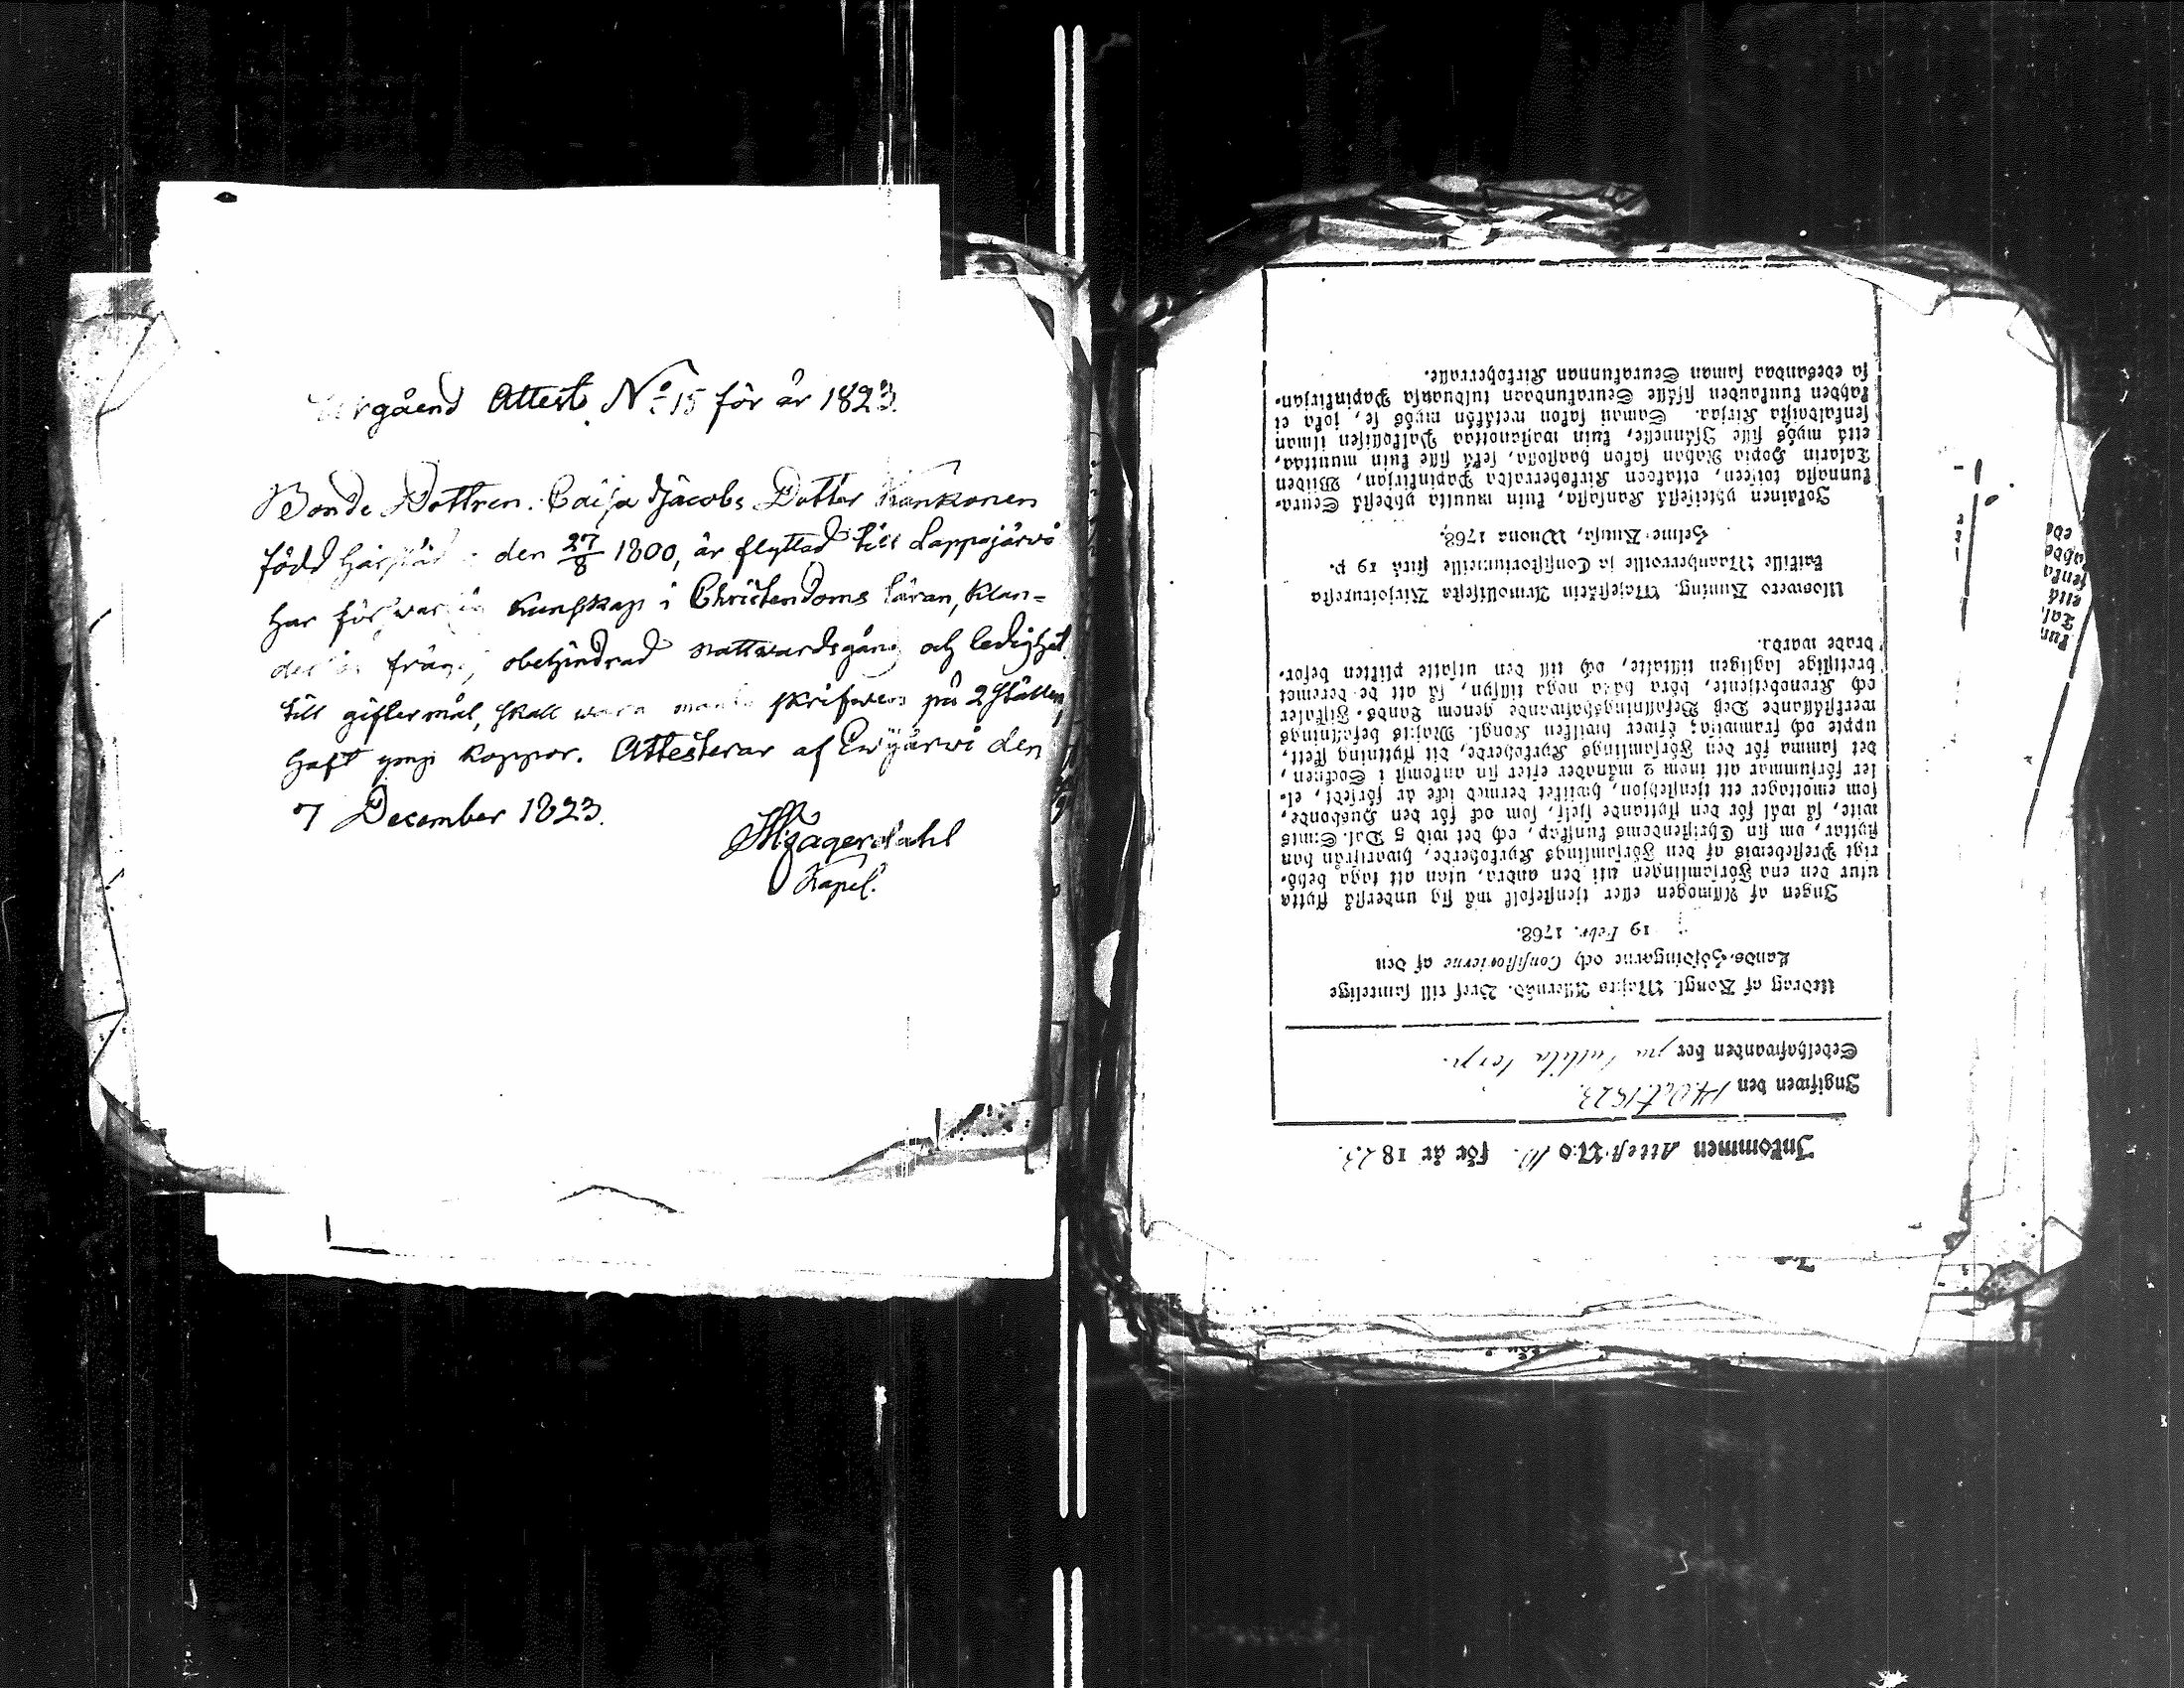 Utgåend Attest No 15 för år 1823.
Bonde Dottren Caisa Jacobs Dotter Kankonen
född härstäd den 27/8 1800, är flyttad till Lappajärvi
har förswarlig kunskap i Christendoms läran, klan-
derlös frägd, obehindrad nattwardsgång och ledighet
till giftermål, skall wara mantalsskrifwen på 2 ställen,
haft koppor. Attesterar af Ewijärwi den
7 December 1823.
Kapel.
Inkommen Attest N:o 10. för år 1823.
Ingifwen den 14 Oct 1823.
Sedelhafwanden bor på torp.
Utdrag af Kongl. Maj:ts Allernåd. Bref till samtelige
Lands-Höfdingarne och Consistorierne af den
19 Febr. 1768.
Ingen af Allmogen eller tjenstefolk må sig understå flytta
utur den ena Församlingen uti den andra, utan att taga behö-
rigt Prestebewis af den Församlings Kyrkoherde, hwarifrån han
flyttar, om sin Christendoms kunskap, och det wid 5 Dal. S:mts
wite, så wäl för den flyttande sjelf, som ock för den Husbonde,
som emottager ett tjenstehjon, hwilket dermed icke är försedt, el-
ler försummar att inom 2 månader efter sin ankomst i Socknen,
det samma för den Församlings Kyrkoherde, dit flyttning skett,
uppte och framwisa; öfwer hwilken Kongl. Maj:ts befallnings
werkställande Dess Befallningshafwande genom Lands-Fiskaler
och Kronobetjente, böra hafwa noga tillsyn, så att de deremot
bretslige lagligen tilltalte, och till den utsatte plikten beför-
drade warda.
Uloswero Kuning. Majestätin Armollisesta Kirjoituxesta
kaikille Maanherroille ja Consistoriumeille siitä 19 p.
Helme-Kuusa, Wuona 1768.
Jokainen yhteisestä Kansasta, kuin muutta yhdestä Seura-
kunnasta toiseen, ottakoon Kirkoherralda Papinkirjan, Wiiden
Talarin Hopia Rahan sakon haastolla, sekä sille kuin muuttaa,
että myös sille Isännelle, kuin wastanottaa Palkollisen ilman
senkaldaista Kirjaa. Saman sakon wetäkön myös se, joka ei
kahden kuukauden sisälle Seurakundaan tulduansa Papinkirjan-
sa edesandaa saman Seurakunnan Kirkoherralle.